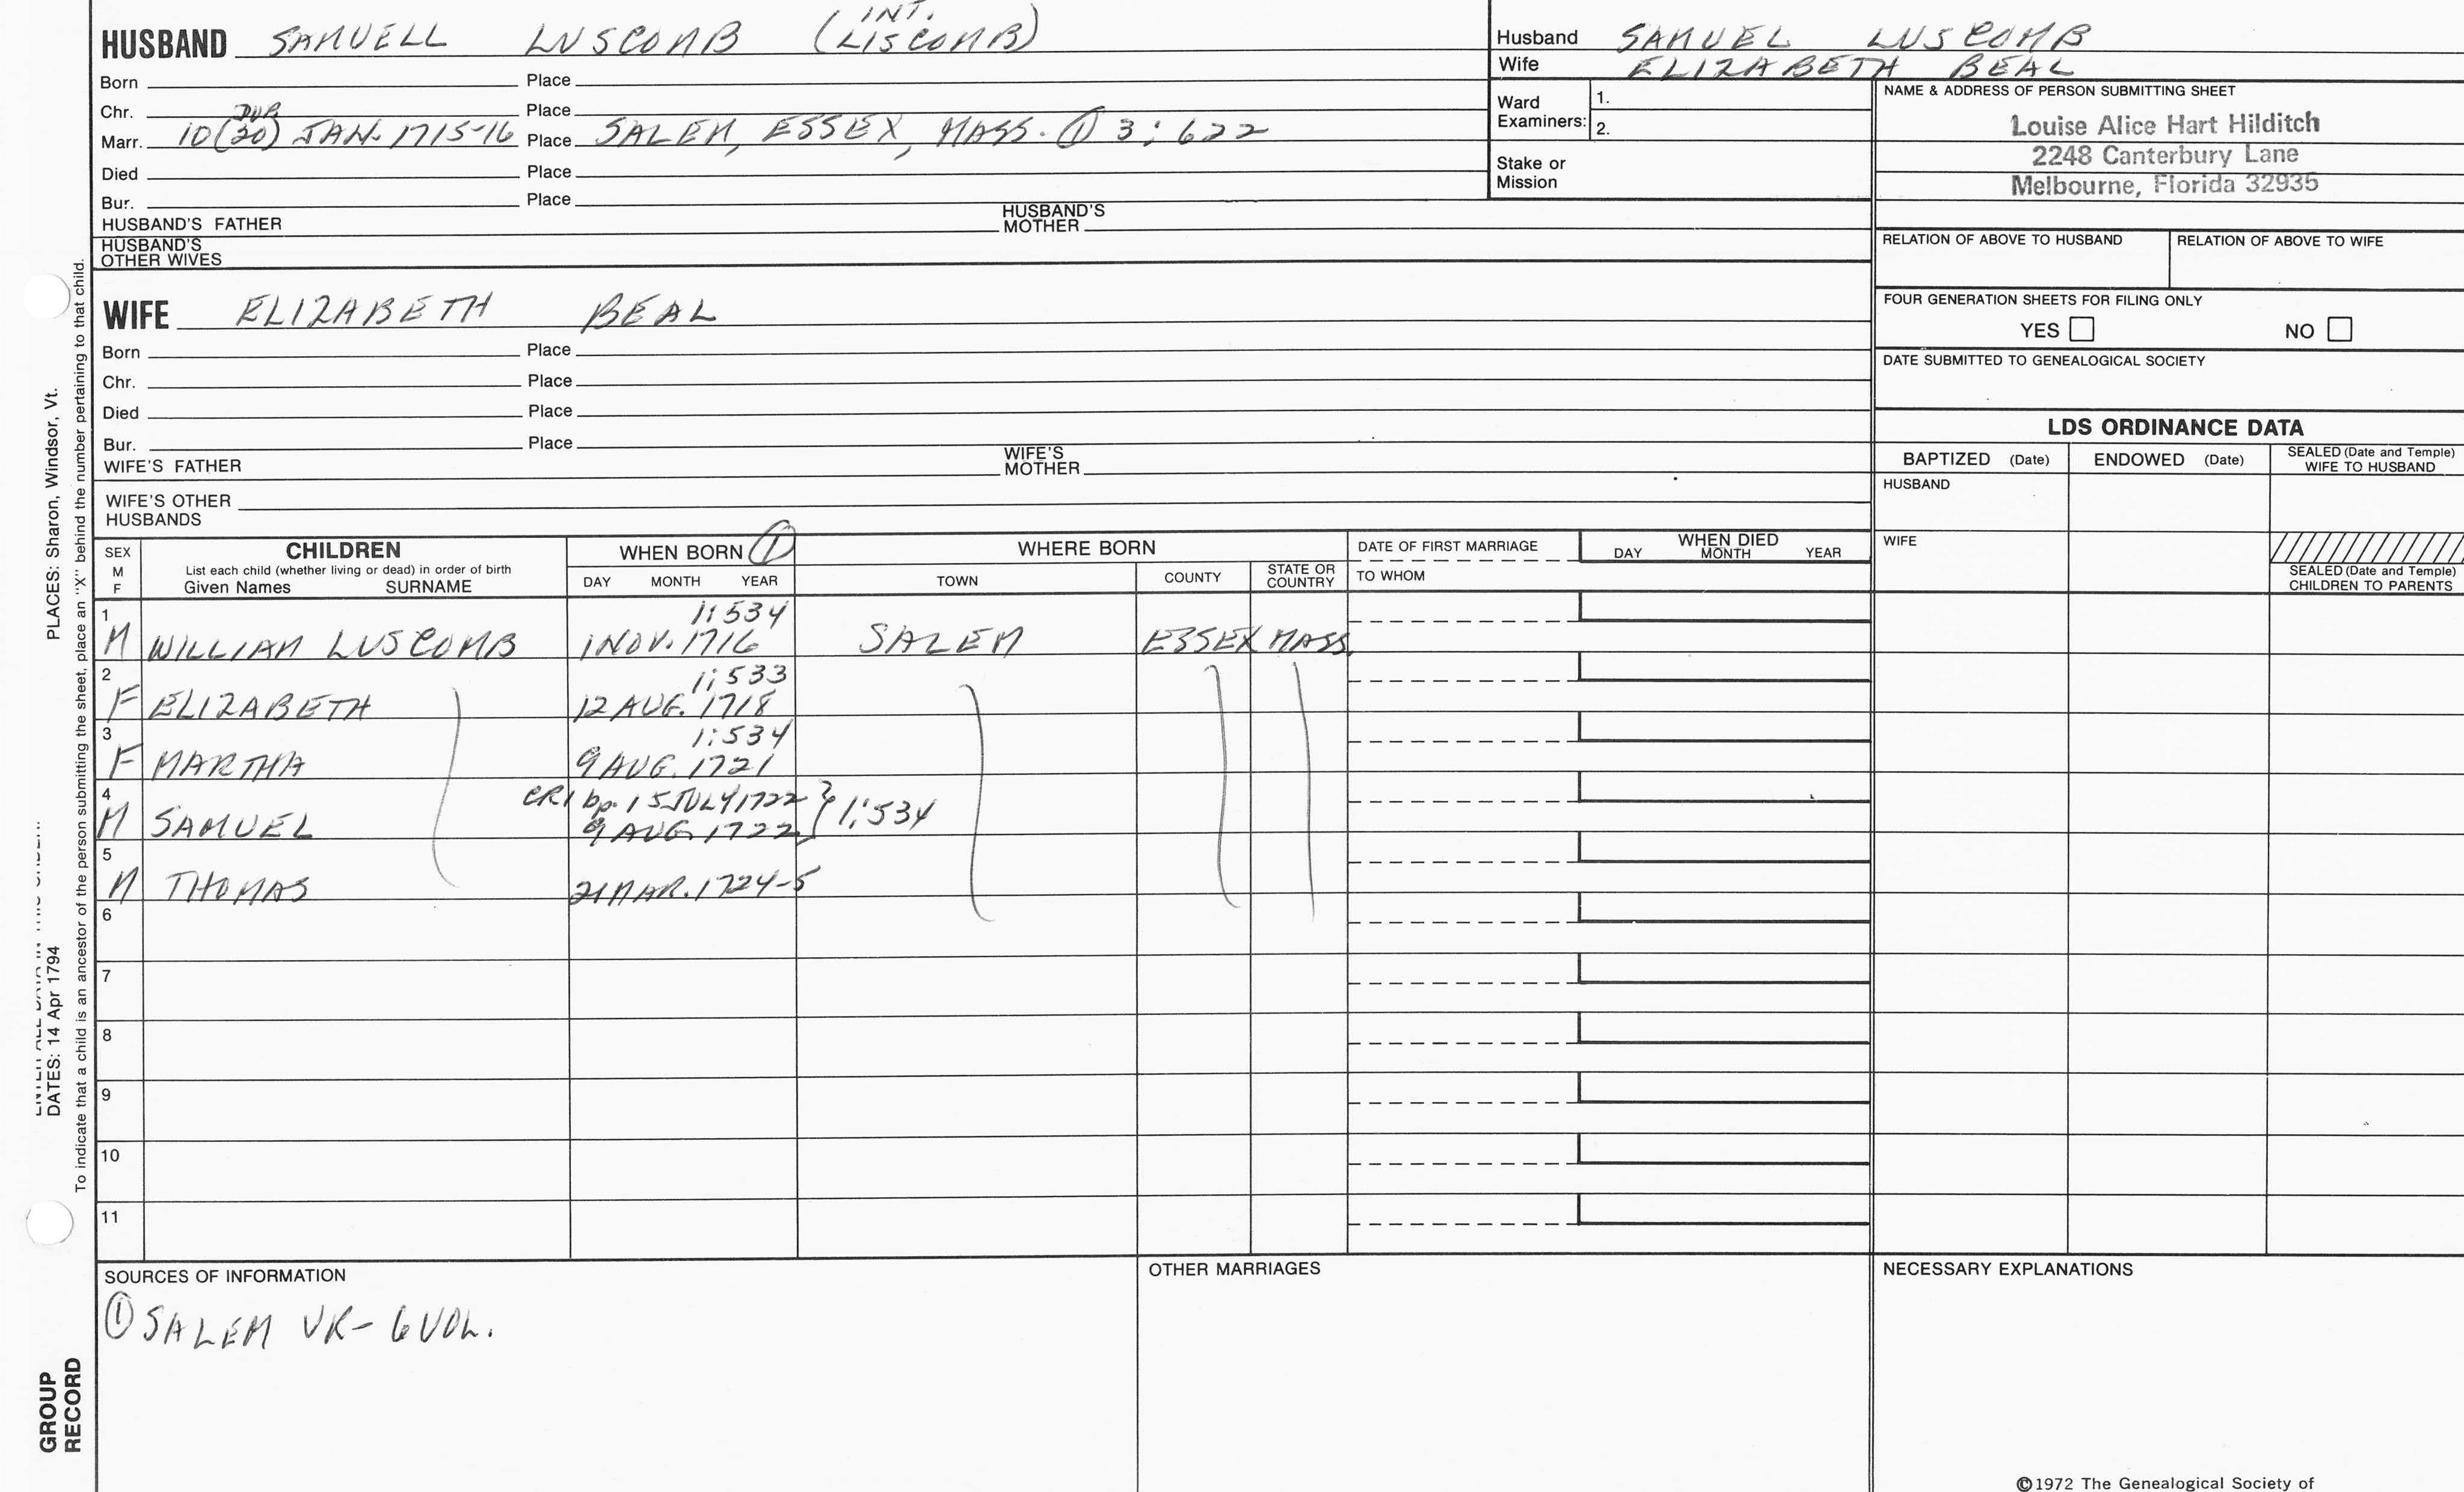 HUSBAND SAMUELL LUSCOMB (INT. LISCOMB)
Born Place
Chr. Place
Marr. 10 (DUP 20) JAN. 1715-16 Place SALEM, ESSEX, MASS. ① 3:622
Died Place
Bur. Place
HUSBAND'S FATHER HUSBAND'S MOTHER
HUSBAND'S OTHER WIVES
Husband SAMUEL LUSCOMB
Wife ELIZABETH BEAL
Ward Examiners: 1.
2.
Stake or Mission
NAME & ADDRESS OF PERSON SUBMITTING SHEET
Louise Alice Hart Hilditch
2248 Canterbury Lane
Melbourne, Florida 32935
RELATION OF ABOVE TO HUSBAND RELATION OF ABOVE TO WIFE
FOUR GENERATION SHEETS FOR FILING ONLY
YES NO
DATE SUBMITTED TO GENEALOGICAL SOCIETY
WIFE ELIZABETH BEAL
Born Place
Chr. Place
Died Place
Bur. Place
WIFE'S FATHER WIFE'S MOTHER
WIFE'S OTHER HUSBANDS
LDS ORDINANCE DATA
BAPTIZED (Date) ENDOWED (Date) SEALED (Date and Temple) WIFE TO HUSBAND
HUSBAND
WIFE
SEALED (Date and Temple) CHILDREN TO PARENTS
SEX M F
CHILDREN
List each child (whether living or dead) in order of birth
Given Names SURNAME
WHEN BORN ①
DAY MONTH YEAR
WHERE BORN
TOWN COUNTY STATE OR COUNTRY
DATE OF FIRST MARRIAGE
TO WHOM
WHEN DIED
DAY MONTH YEAR
1 1:534
M WILLIAM LUSCOMB 1 NOV. 1716 SALEM ESSEX MASS.
2 1:533
F ELIZABETH 12 AUG. 1718
3 1:534
F MARTHA 9 AUG. 1721
4 CR1 bp. 15 JULY 1722 } 1:534
M SAMUEL 9 AUG. 1722
5
M THOMAS 21 MAR. 1724-5
6
7
8
9
10
11
SOURCES OF INFORMATION
① SALEM VR- 6 VOL.
OTHER MARRIAGES
NECESSARY EXPLANATIONS
©1972 The Genealogical Society of
PLACES: Sharon, Windsor, Vt.
DATES: 14 Apr 1794
To indicate that a child is an ancestor of the person submitting the sheet, place an "X" behind the number pertaining to that child.
GROUP
RECORD